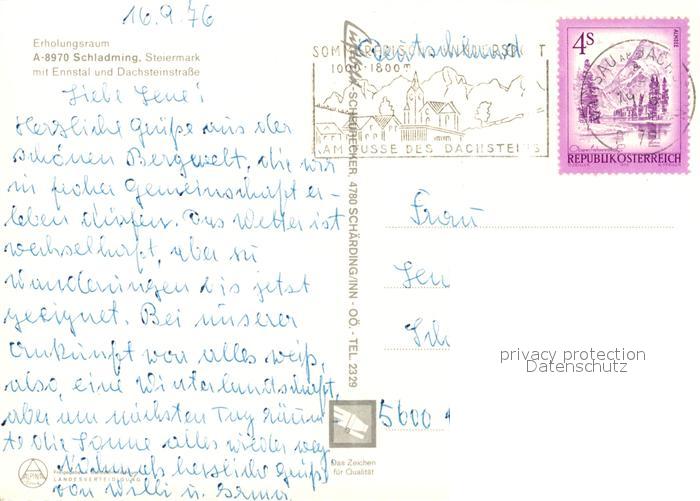 16.9.76
Erholungsraum
A-8970 Schladming, Steiermark
mit Ennstal und Dachsteinstraße
Liebe Lene!
Herzliche Grüße aus der
schönen Bergwelt, die wir
in froher Gemeinschaft er-
leben dürfen. Das Wetter ist
wechselhaft, aber zu
Wanderungen bis jetzt
geeignet. Bei unserer
Ankunft war alles weiß,
also eine Winterlandschaft,
aber am nächsten Tag räum-
te die Sonne alles wieder weg.
Nochmals herzliche Grüße
von Willi u.
ALPINE
LANDESVERTEIDIGUNG
SCHEUHECKER, 4780 SCHÄRDING/INN - OÖ. - TEL. 2329
Deutschland
1000-1800m
AM FUSSE DES DACHSTEINS
4S
ALMSEE
REPUBLIK ÖSTERREICH
Frau
Len
Sch
5600
privacy protection
Datenschutz
Das Zeichen
für Qualität